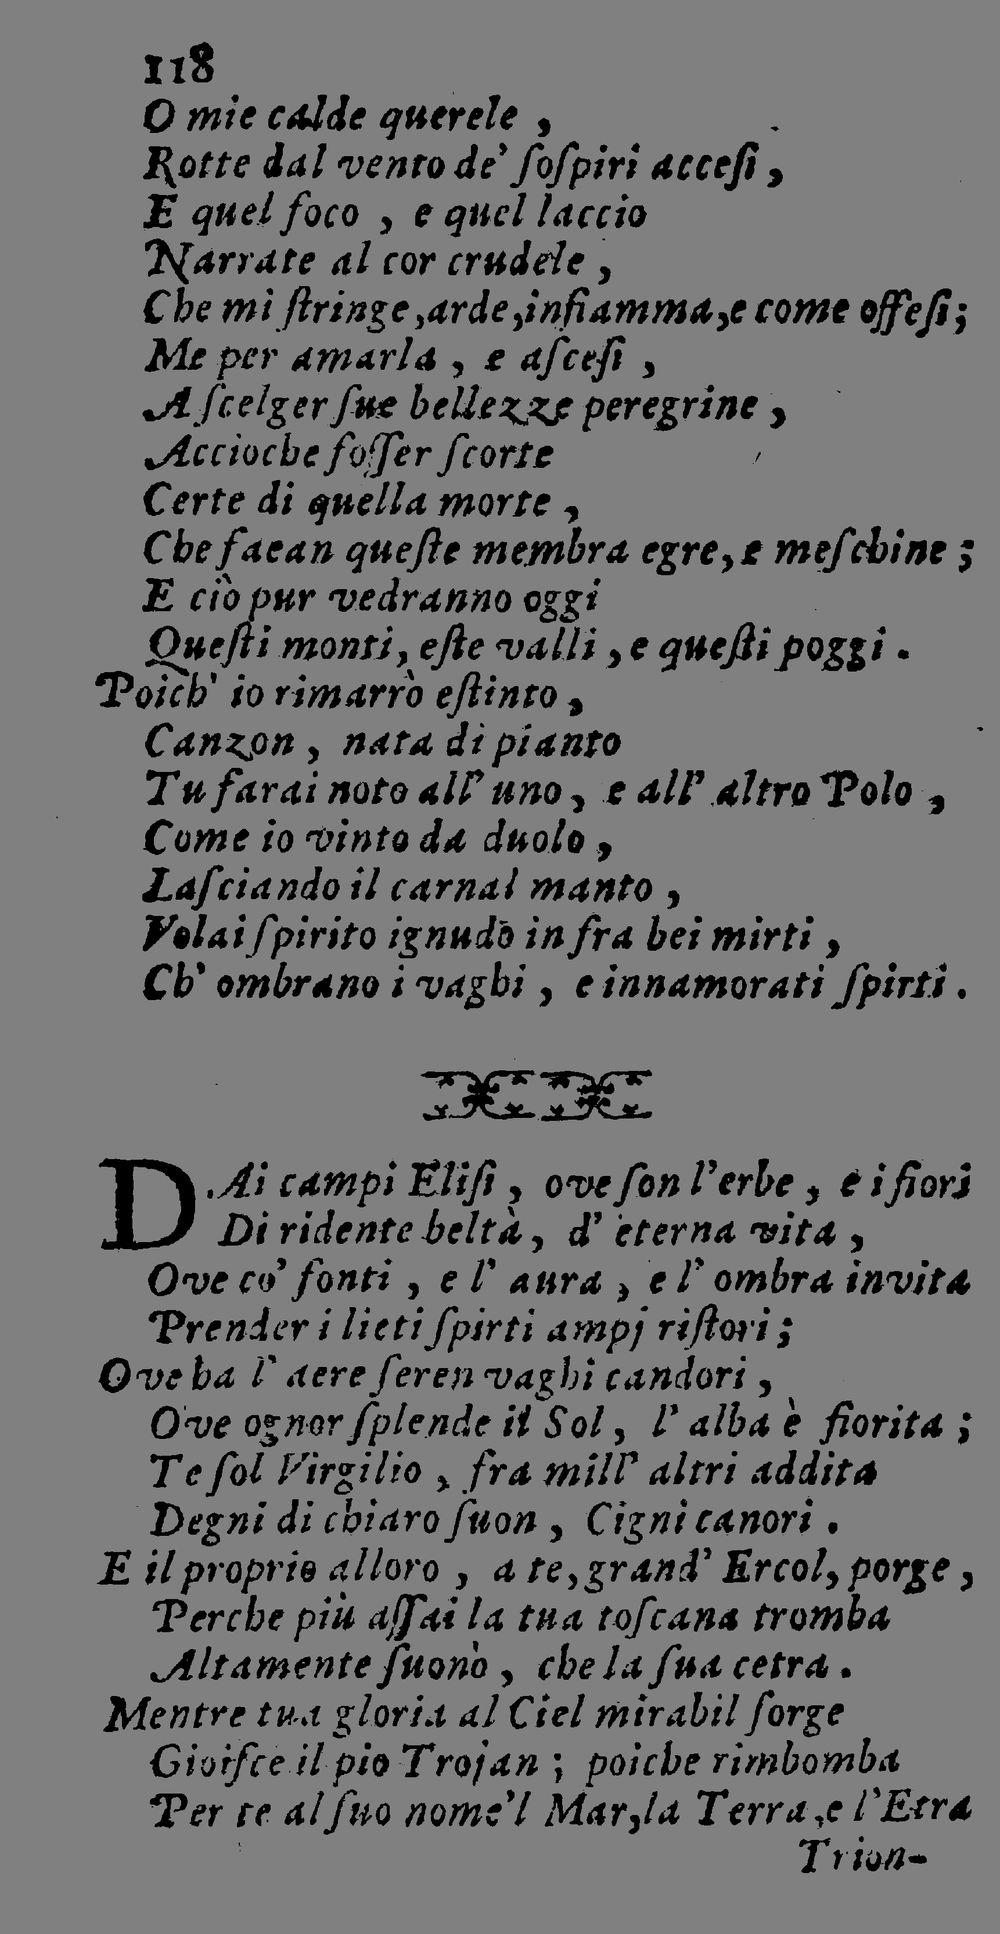 118
O mie calde querele ,
Rotte dal vento de' ſoſpiri acceſi ,
E quel foco , e quel laccio
Narrate al cor crudele ,
Che mi ſtringe,arde,infiamma,e come offeſi;
Me per amarla , e aſceſi ,
A ſcelger ſue bellezze peregrine ,
Accioche foſſer ſcorte
Certe di quella morte ,
Che faean queſte membra egre, e meſchine ;
E ciò pur vedranno oggi
Queſti monti, eſte valli , e queſti poggi .
Poich' io rimarrò eſtinto ,
Canzon , nata di pianto
Tu farai noto all' uno, e all' altro Polo ,
Come io vinto da duolo ,
Laſciando il carnal manto ,
Volai ſpirito ignudo in fra bei mirti ,
Ch' ombrano i vaghi , e innamorati ſpirti .
DAi campi Eliſi , ove ſon l'erbe , e i fiori
Di ridente beltà, d' eterna vita ,
Ove co' fonti , e l' aura , e l' ombra invita
Prender i lieti ſpirti ampj riſtori ;
Ove ha l' aere ſeren vaghi candori ,
Ove ognor ſplende il Sol, l' alba è fiorita ;
Te ſol Virgilio , fra mill' altri addita
Degni di chiaro ſuon , Cigni canori .
E il proprio alloro , a te,grand' Ercol, porge ,
Perche più aſſai la tua toſcana tromba
Altamente ſuonò , che la ſua cetra .
Mentre tua gloria al Ciel mirabil ſorge
Gioiſce il pio Trojan ; poiche rimbomba
Per te al ſuo nome'l Mar,la Terra,e l'Etra
Trion-